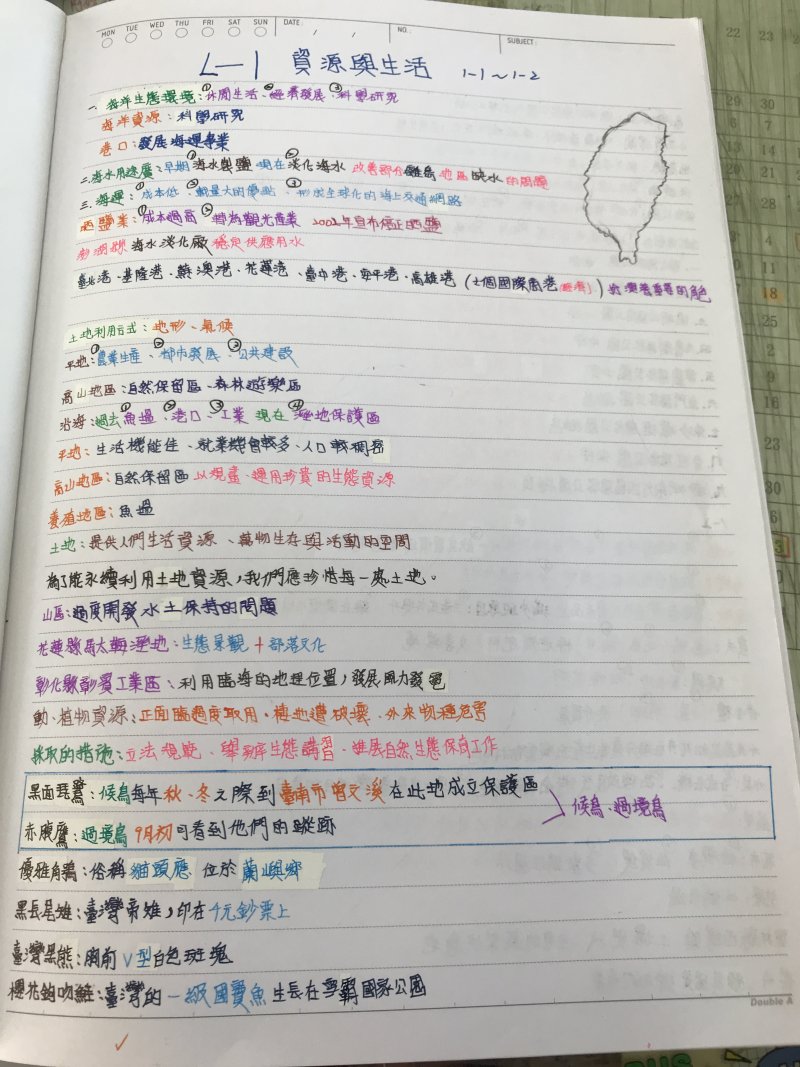 MON TUE WED THU FRI SAT SUN DATE: / / NO.: SUBJECT:
L-1 資源與生活 1-1~1-2
一、海洋生態環境:①休閒生活、②經濟發展、③科學研究
海洋資源:科學研究
港口:發展海運事業
二、海水用途廣:早期①海水製鹽 現在②淡化海水 改善部分離島地區缺水的問題
三、海運:①成本低、②載量大的優點、③形成全球化的海上交通網路
晒鹽業:①成本過高、②轉為觀光產業 2002年宣布停止晒鹽
澎湖縣 海水淡化廠 穩定供應用水
臺北港、基隆港、蘇澳港、花蓮港、臺中港、安平港、高雄港(七個國際商港(經濟))扮演著重要的角色
土地利用方式:地形、氣候
平地:①農業生產、②都市發展、③公共建設
高山地區:自然保留區、森林遊樂區
沿海:過去①魚塭、②港口、③工業 現在④溼地保護區
平地:生活機能佳、就業機會較多、人口較稠密
高山地區:自然保留區 以規畫、運用珍貴的生態資源
養殖地區:魚塭
土地:提供人們生活資源、萬物生存與活動的空間
為了能永續利用土地資源,我們應珍惜每一處土地。
山區:過度開發水土保持的問題
花蓮縣馬太鞍溼地:生態景觀+部落文化
彰化縣彰濱工業區:利用臨海的地理位置,發展風力發電
動、植物資源:正面臨過度取用、棲地遭破壞、外來物種危害
採取的措施:立法規範、舉辦生態講習、進展自然生態保育工作
黑面琵鷺:候鳥每年秋、冬之際到臺南市曾文溪在此地成立保護區
候鳥、過境鳥
赤腹鷹:過境鳥 9月初可看到他們的蹤跡
優雅角鴞:俗稱貓頭鷹 位於蘭嶼鄉
黑長尾雉:臺灣帝雉,印在千元鈔票上
臺灣黑熊:胸前V型白色斑塊
櫻花鉤吻鮭:臺灣的一級國寶魚 生長在雪霸國家公園
Double A
22 23
29 30